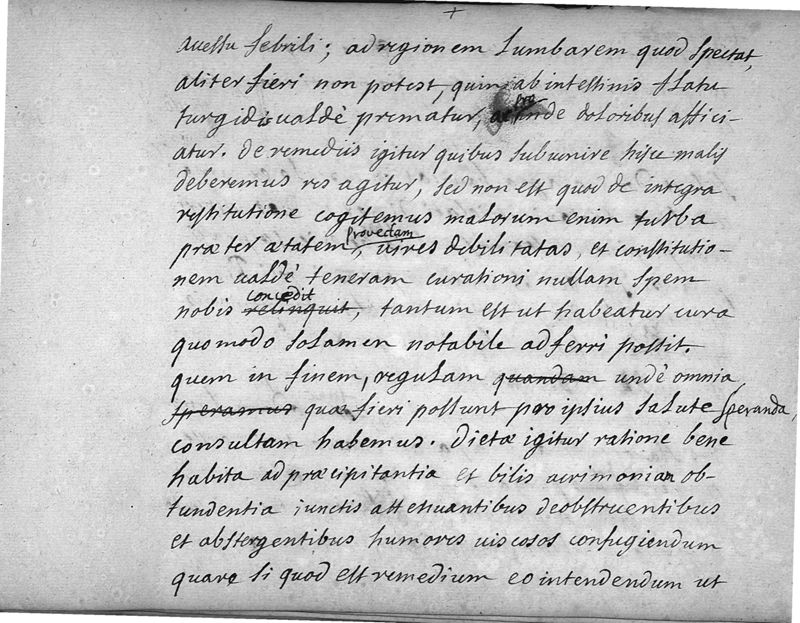 +
accessu febrili; ad regionem lumbarem quod spectat,
aliter fieri non potest, quin ab intestinis flatu
turgidis valdè prematur, pro inde doloribus affici-
atur. de remediis igitur quibus subvenire hisce malis
deberemus res agitur, sed non est quod de integra
restitutione cogitemus malorum enim turba
præter ætatem provectam, vires debilitatas, et constitutio-
nem valdè teneram curationi nullam spem
nobis relinquit concedit, tantum est ut habeatur cura
quomodo solamen notabile adferri possit.
quem in finem, regulam quandam undè omnia
speramus quæ fieri possunt pro ipsius salute speranda,
consultam habemus. Dietæ igitur ratione bene
habita ad præcipitantia et bilis acrimoniam ob-
tundentia iunctis attenuantibus deobstruentibus
et abstergentibus humores viscosos confugiendum
quare si quod est remedium eo intendendum ut